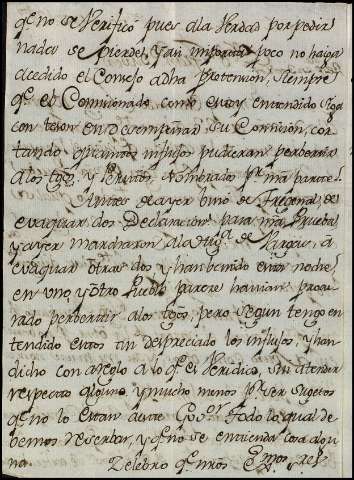 qe. no se Verificó pues ala Verdad por pedir
nada se pierde, y asi importa poco no haya
acedido el Consejo adha pretension, siempre
qe. el Comisionado como estoy entendido
con teson en desempeñar su Comision, cor
tando quantos influjos pudieran perbertir
alos tgos. y Peritos nombrados pr. mia parte.
Antes de ayer bino de Fregenal, de
evaquar dos Declaracion para mia Prueba
y ayer marcharon ala de Burgos, a
evaquar otras dos y han benido esta noche,
en uno, y otro Pueblo parece havian procu
rado perbertir alos tgos, pero segun tengo en
tendido estos an despreciado los influjos, y han
dicho con areglo a lo qe. es Veridico, sin atender
respecto alguno y mucho menos pr. ser Sugetos
qe. no lo estan a este Todo lo qual de
bemos reserbar, y qe. no se entienda cosa algu
na.
Zelebro qe. mros